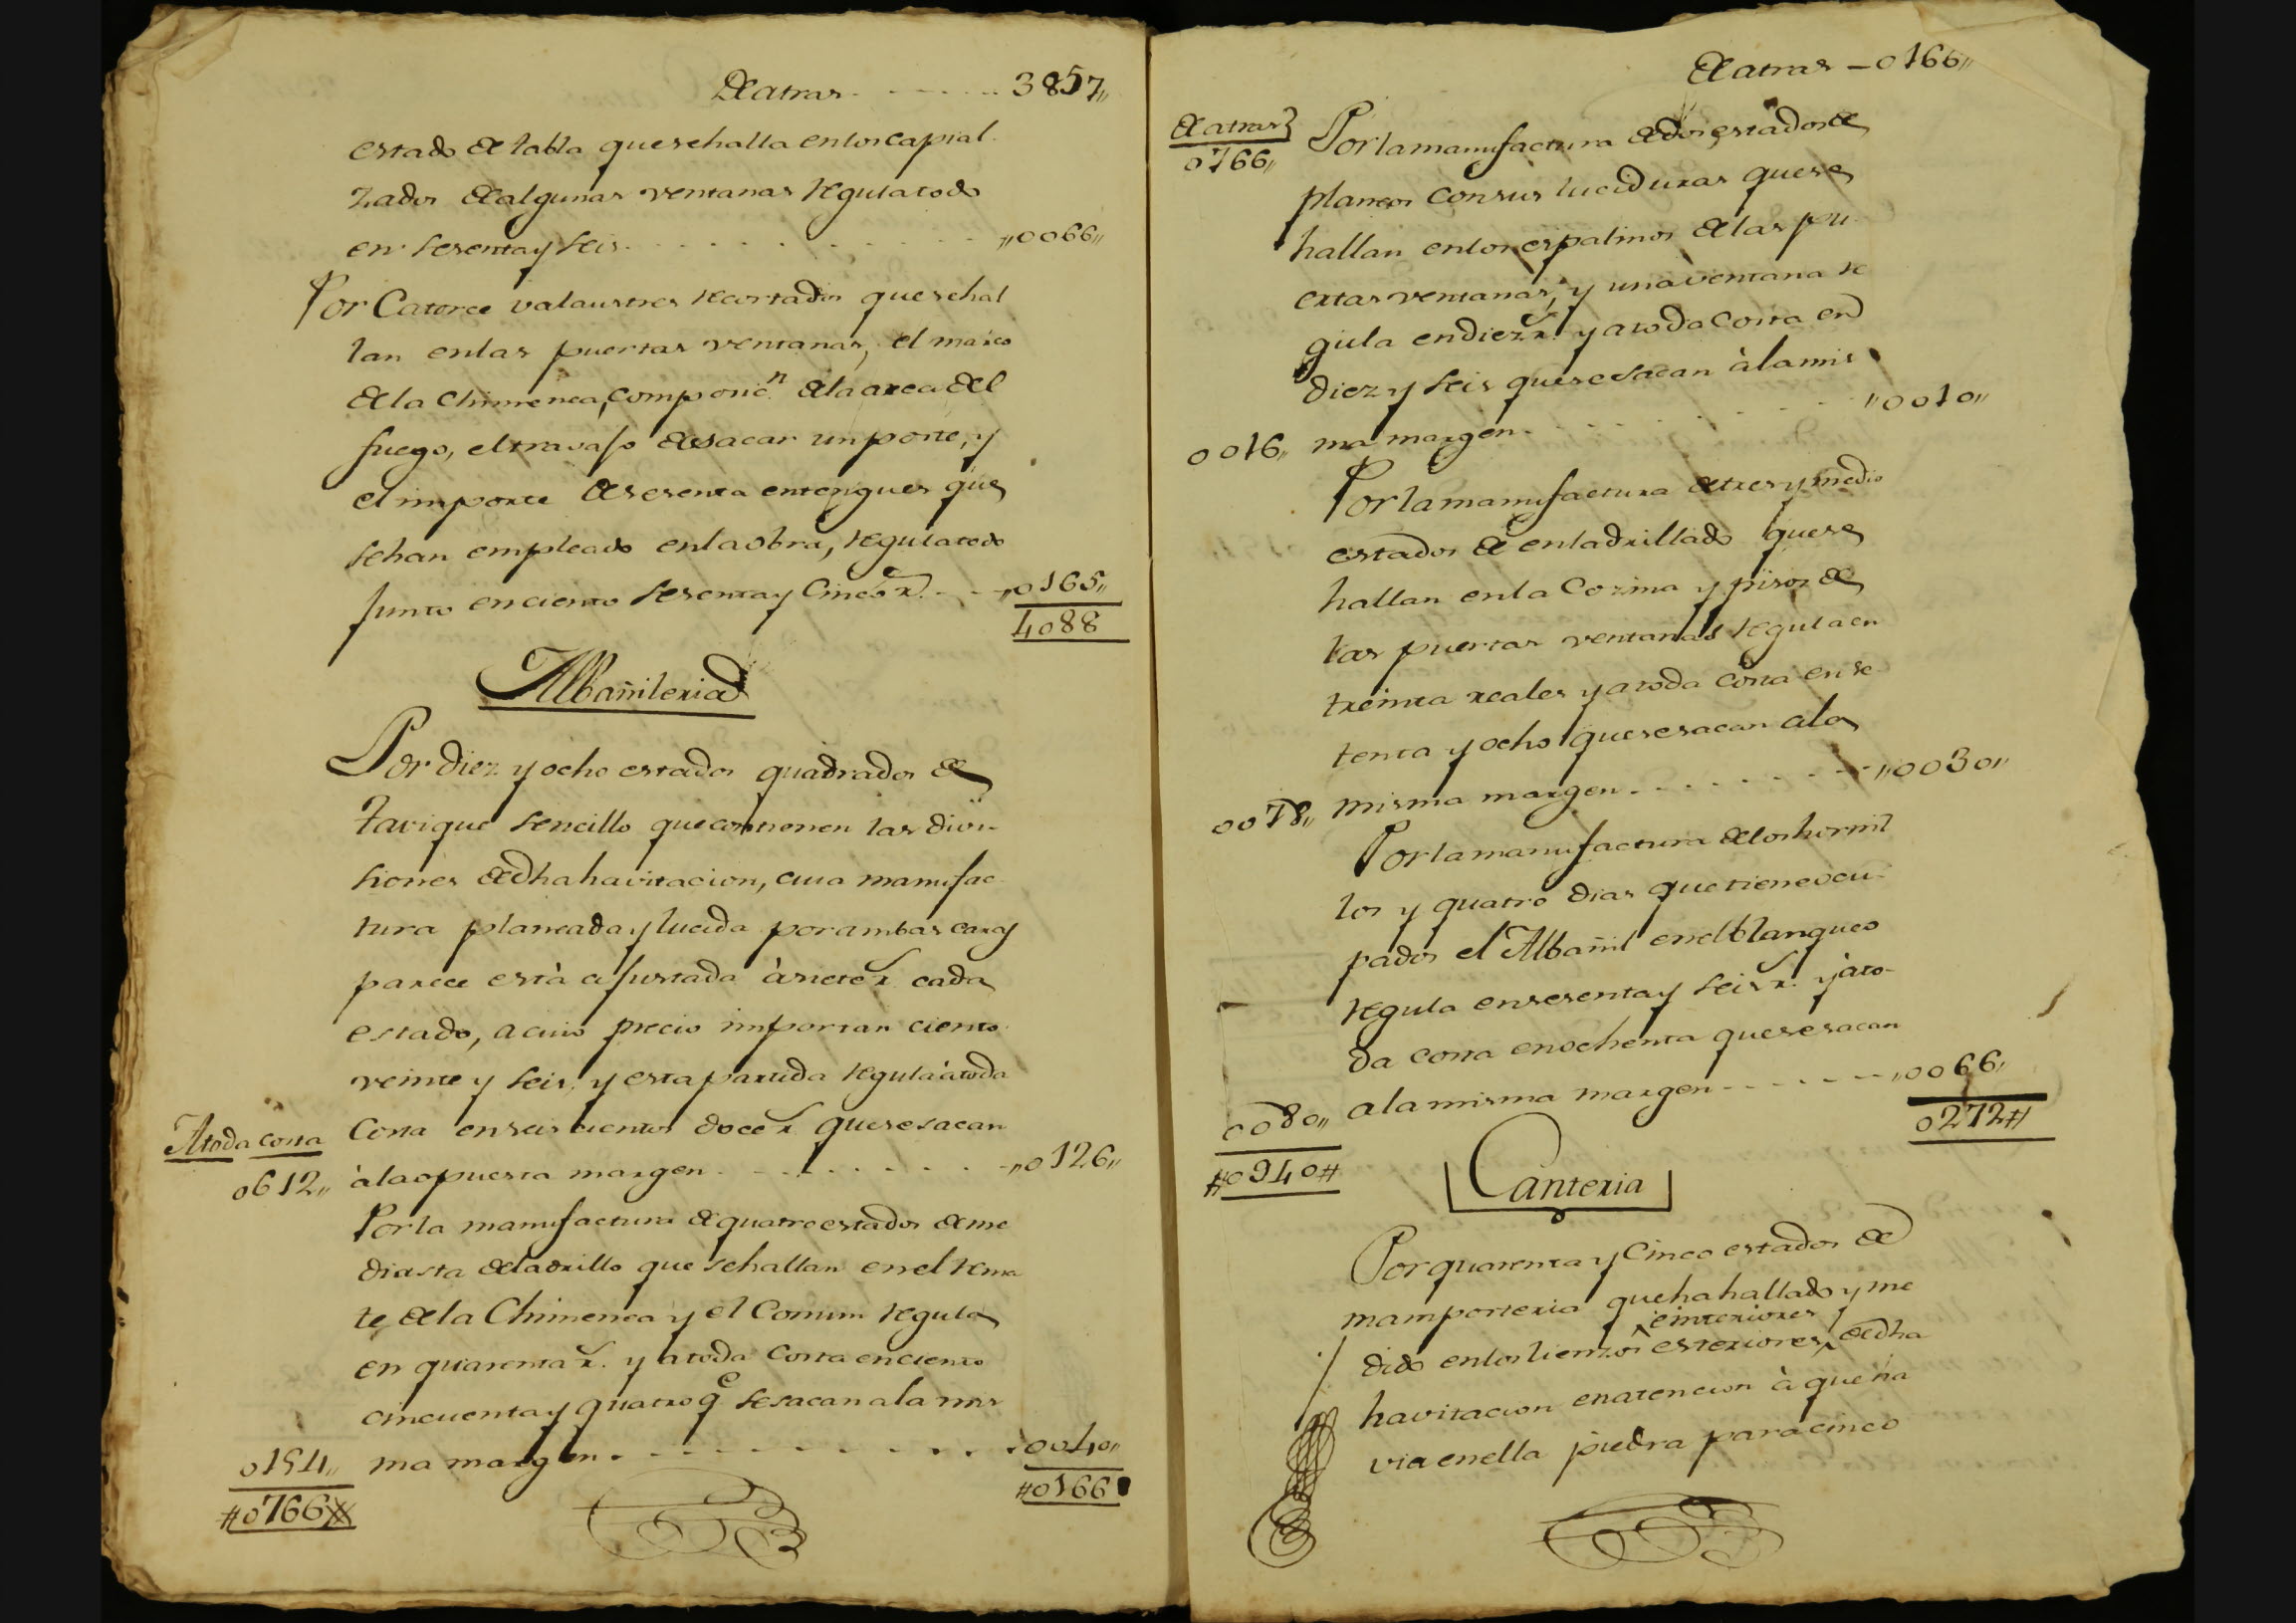 De atras - - - - - - 3857,,
estado de tabla que se halla en los capial-
zados de algunas ventanas regula todo
en sesenta y seis - - - - - - - - - - ,,0066,,
Por Catorce valaustres recortados que se hal
lan en las puertas ventanas, el marco
de la Chimenea, composic.n de la arca del
fuego, el travajo de sacar un poste, y
el importe de sesenta entengues que
se han empleado en la obra, regula todo
Junto en ciento sesenta y Cinco r.s - - ,,0165,,
4088
Albañileria
Por diez y ocho estados quadrados de
tavique sencillo que contienen las divi-
siones de dha havitacion, cuia manufac-
tura planeada y lucida por ambas caras
parece està ajustada à siete r.s cada
estado, a cuio precio importan ciento
veinte y seis. y esta partida regula à toda
A toda costa Costa en seis cientos doce r.s que se sacan
0612,, à la opuesta margen - - - - - - - - ,,0126,,
Por la manufactura de quatro estados de me
diasta de ladrillo que se hallan en el rema
te, de la Chimenea y el Comun regula
en quarenta r.s y a toda Costa en ciento
cincuenta y quatro q.e se sacan a la mis
0154,, ma margen - - - - - - - - - - 0040,,
#0766# #0166
De atras - 0166,,
De atras
0766,,
Por la manufactura de dos estados de
planeos con sus luciduras que se
hallan en los espatinos de las pu-
ertas ventanas, y una ventana re
gula en diez r.s y a toda Costa en
diez y seis que se sacan à la mis
0016,, ma margen - - - - - - - - ,,0010,,
Por la manufactura de tres y medio
estados de enladrillado que se
hallan en la Cozina y pisos de
las puertas ventanas regula en
treinta reales y a toda costa en se-
tenta y ocho que se sacan a la
0078,, misma margen - - - - - - - ,,0030,,
Por la manufactura de los hornil
los y quatro dias que tiene ocu-
pados el Albañil en el blanqueo
regula en sesenta y seis r.s y à to-
da costa en ochenta que se sacan
0080,, a la misma margen - - - - - - ,,0066,,
#0940# 0272#
Canteria
Por quarenta y Cinco estados de
mamposteria que ha hallado y me
einteriores
dido en los lienzos esteriores, de dha
havitacion en atencion à que ha
via en ella piedra para cinco